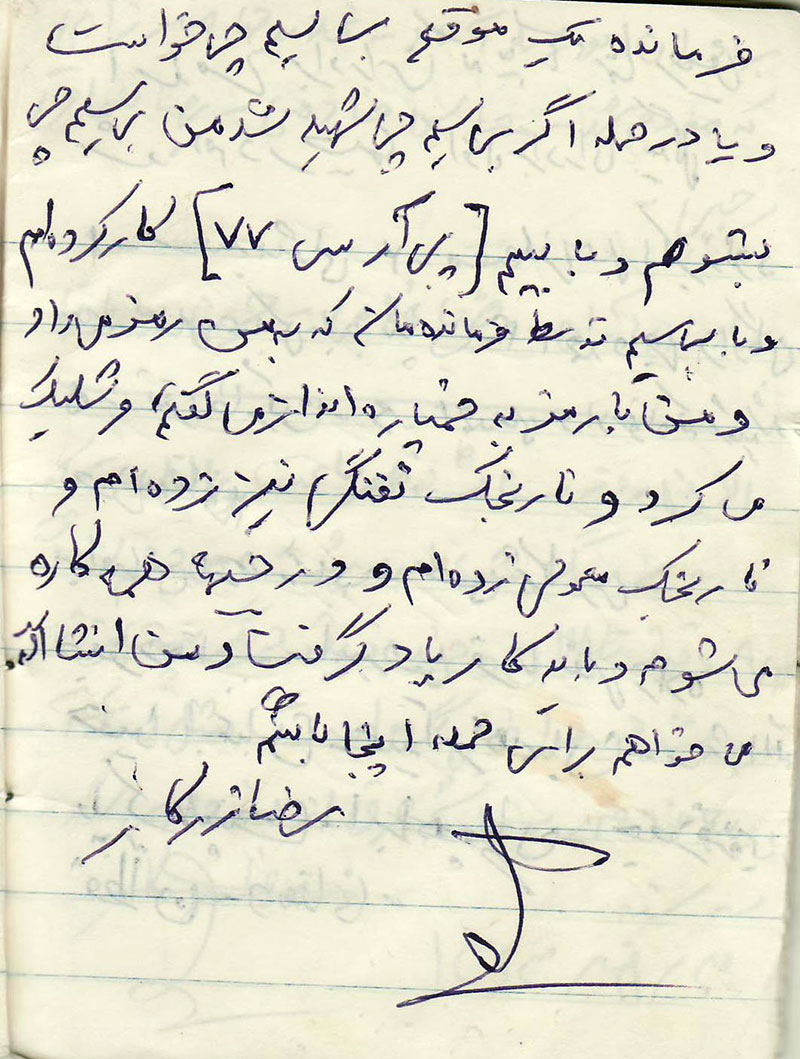 فرمانده یک موقع بی سیم چی خواست
و یا در حمله اگر بی سیم چی شهید شد من بی سیم چی
بشوهم و با بیسیم [پی آر سی ۷۷] کار کرده ام
و با بی سیم توسط فرمانده مان که به من رمز می داد
و من با رمز به خمپاره انداز می گفتم و شلیک
می کرد و نارنجک تفنگی نیز زده ام و
نارنجک معمولی زده ام و در جبهه همه کاره
می شوم و باید کار یاد گرفت و من انشاالله
می خواهم برای حمله اینجا باشم
رضا